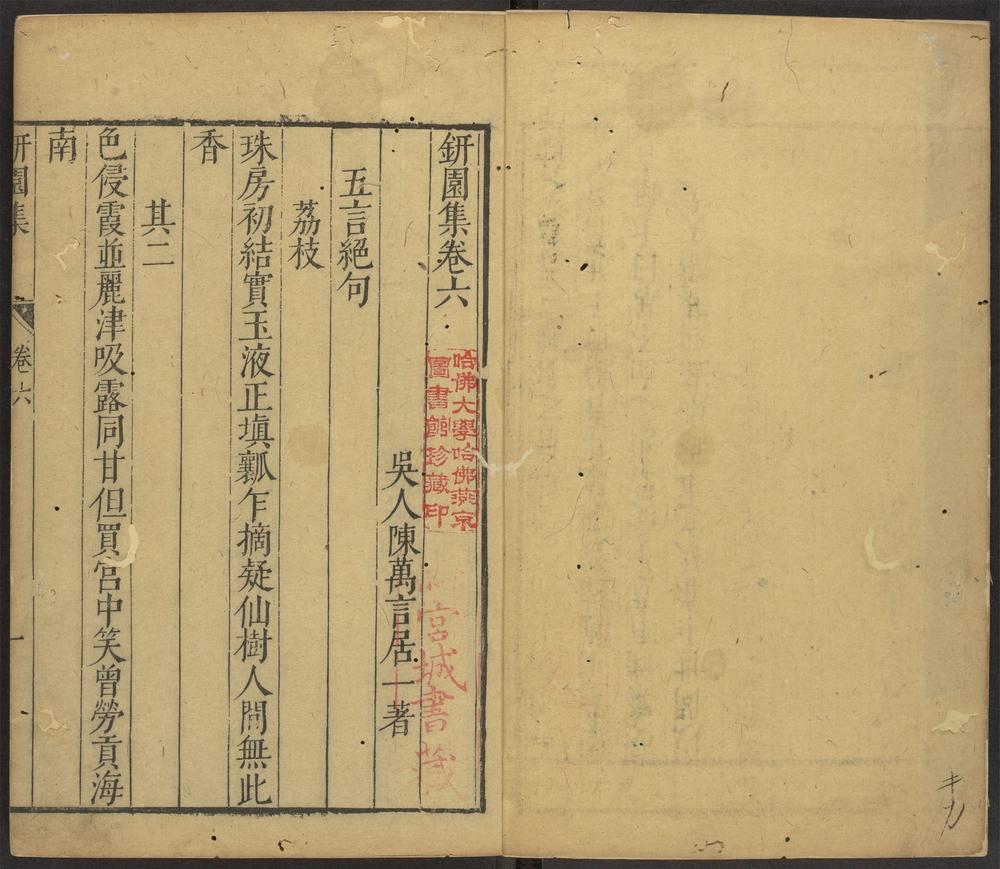 鈃園集卷六
哈佛大學哈佛燕京
圖書館珍藏印
宮城書藏
吳人陳萬言居一著
五言絕句
荔枝
珠房初結實玉液正塡瓤乍摘疑仙樹人間無此
香
其二
色侵霞並麗津吸露同甘但買宮中笑曾勞貢海
南
研園集
卷六
一